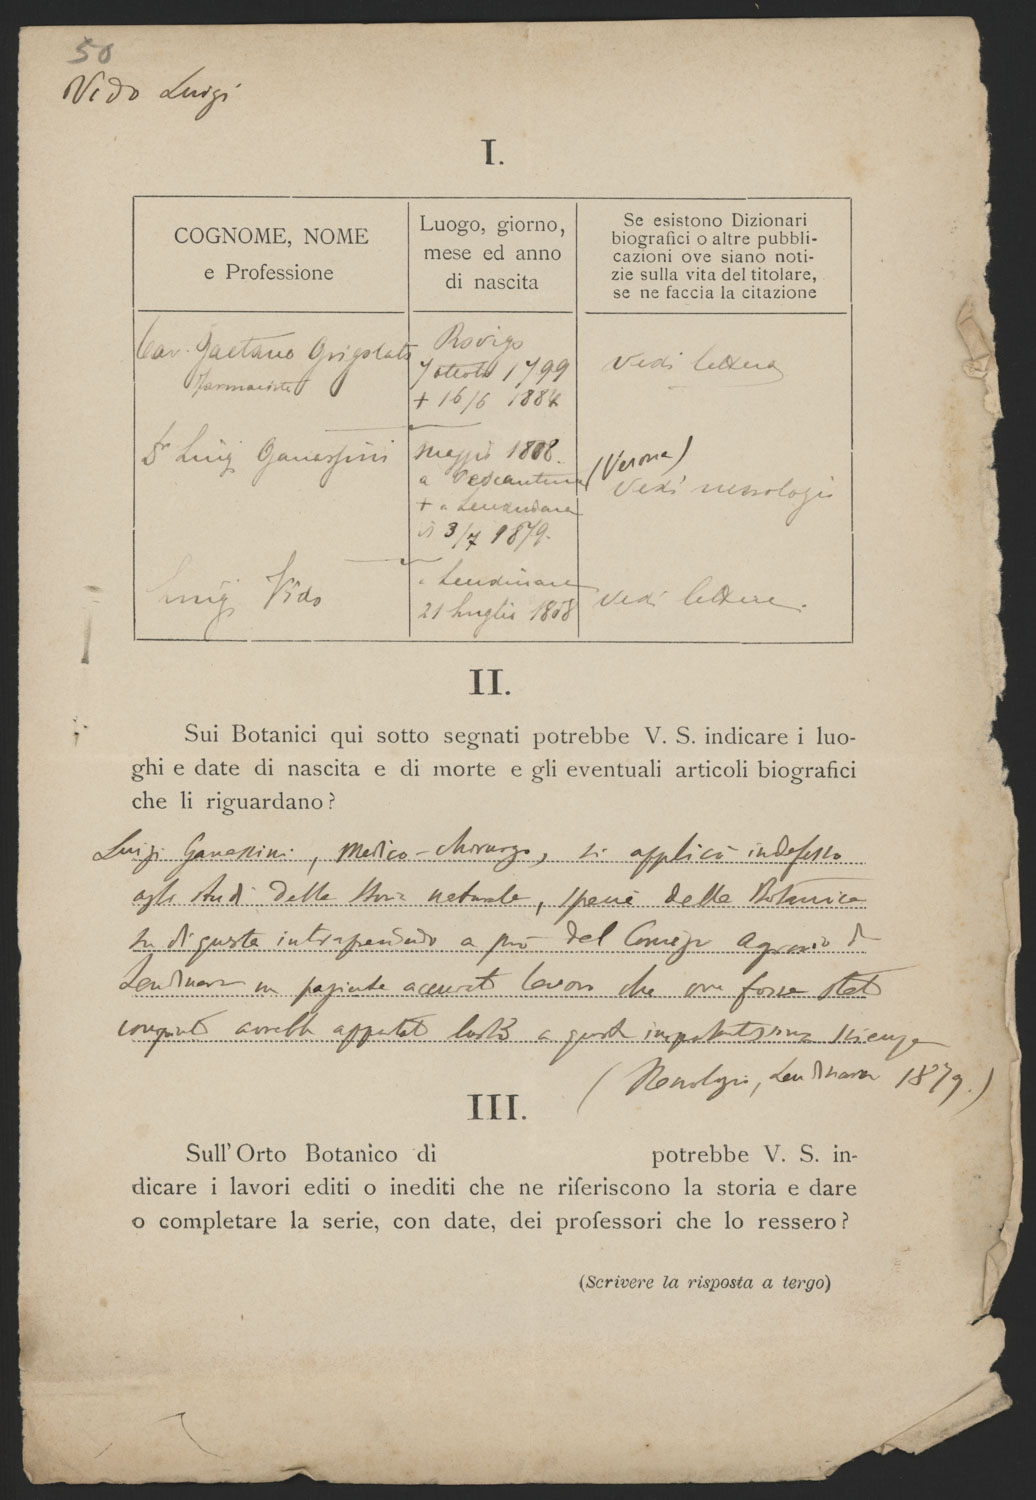 50
Vido Luigi
I.
COGNOME, NOME
e Professione
Luogo, giorno,
mese ed anno
di nascita
Se esistono Dizionari
biografici o altre pubbli-
cazioni ove siano noti-
zie sulla vita del titolare,
se ne faccia la citazione
Cav. Gaetano Grigolato
farmacista
Rovigo
7 1799
+ 16/6 1884
Vedi lettera
Dr Luigi Ganassini
maggio 1808.
a Pescantina
+ a Lendinara
3/7 1879.
(Verona)
Vedi necrologio
Luigi Vido
a Lendinara
21 Luglio 1808
Vedi lettera.
II.
Sui Botanici qui sotto segnati potrebbe V. S. indicare i luo-
ghi e date di nascita e di morte e gli eventuali articoli biografici
che li riguardano?
Luigi Ganassini, Medico-chirurgo, si applicò indefesso
agli studi della storia naturale, specie della Botanica
intraprendendo a pro del Comizio Agrario di
Lendinara un paziente accurato lavoro che ove fosse stato
compiuto avrebbe apportato lustro a questa importantissima scienza
(Necrologio, Lendinara 1879.)
III.
Sull'Orto Botanico di potrebbe V. S. in-
dicare i lavori editi o inediti che ne riferiscono la storia e dare
o completare la serie, con date, dei professori che lo ressero?
(Scrivere la risposta a tergo)